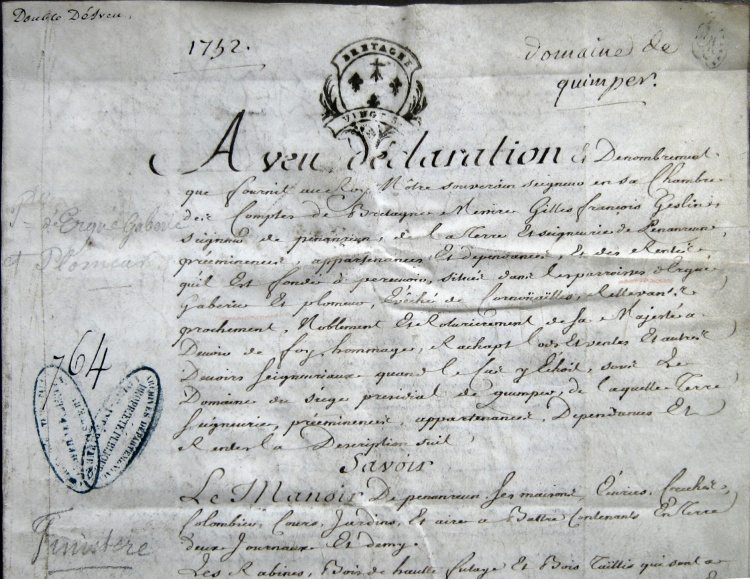 Double D'aveu.
1752.
domaine de
quimper.
BRETAGNE
VINGT S
Aveu, déclaration & Denombrement
que fournit au Roy Nôtre souverain seigneur en sa Chambre
des Comptes de Bretagne Messire Gilles françois Geslin
seigneur de penanrun, de la Terre Et seigneurie de Penanrun,
préeminences, appartenances Et dependances, Et des Rentes
qu'il Est fondé a percevoir, situés dans les parroisses d'Ergue
Gaberic Et plomeur, Evêché de Cornoüailles, Rellevans
prochement, Noblement Et Roturierement de Sa Majesté a
Devoir de foy, hommage, Rachapt Lods Et ventes Et autres
Devoirs seigneuriaux quand le Cas y Echoit, sous Le
Domaine du siege presidial de quimper, de laquelle Terre
seigneurie, préeminences, appartenances, Dependances Et
Rentes La Description suit
Savoir
Le Manoir De penanrun ses maisons, Ecuries, Creches,
Colombier, Cours, Jardins, Et aire a Battre Contenants En Terre
deux Journaux Et demy.
Les Rabines, Bois de haulte futaye Et Bois Taillis qui sont a
P.sse d'Ergué Gaberic
et Plomeur
764
ARCHIVES DÉPARTEMENTALES
PROPRIÉTÉ PUBLIQUE
Finistere